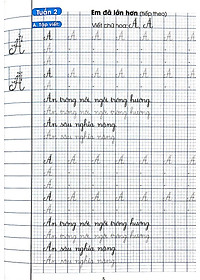 Tuần 2
Em đã lớn hơn (tiếp theo)
A. Tập viết
Viết chữ hoa: Ă, Â
Ă Ă Ă Ă Ă Ă Ă
Â Â Â Â Â Â Â
Ăn trông nồi, ngồi trông hướng.
Ân sâu nghĩa nặng.
Ă Ă Ă Ă Ă Ă Ă
Â Â Â Â Â Â Â
Ăn trông nồi, ngồi trông hướng.
Ân sâu nghĩa nặng.
Ân sâu nghĩa nặng.
5